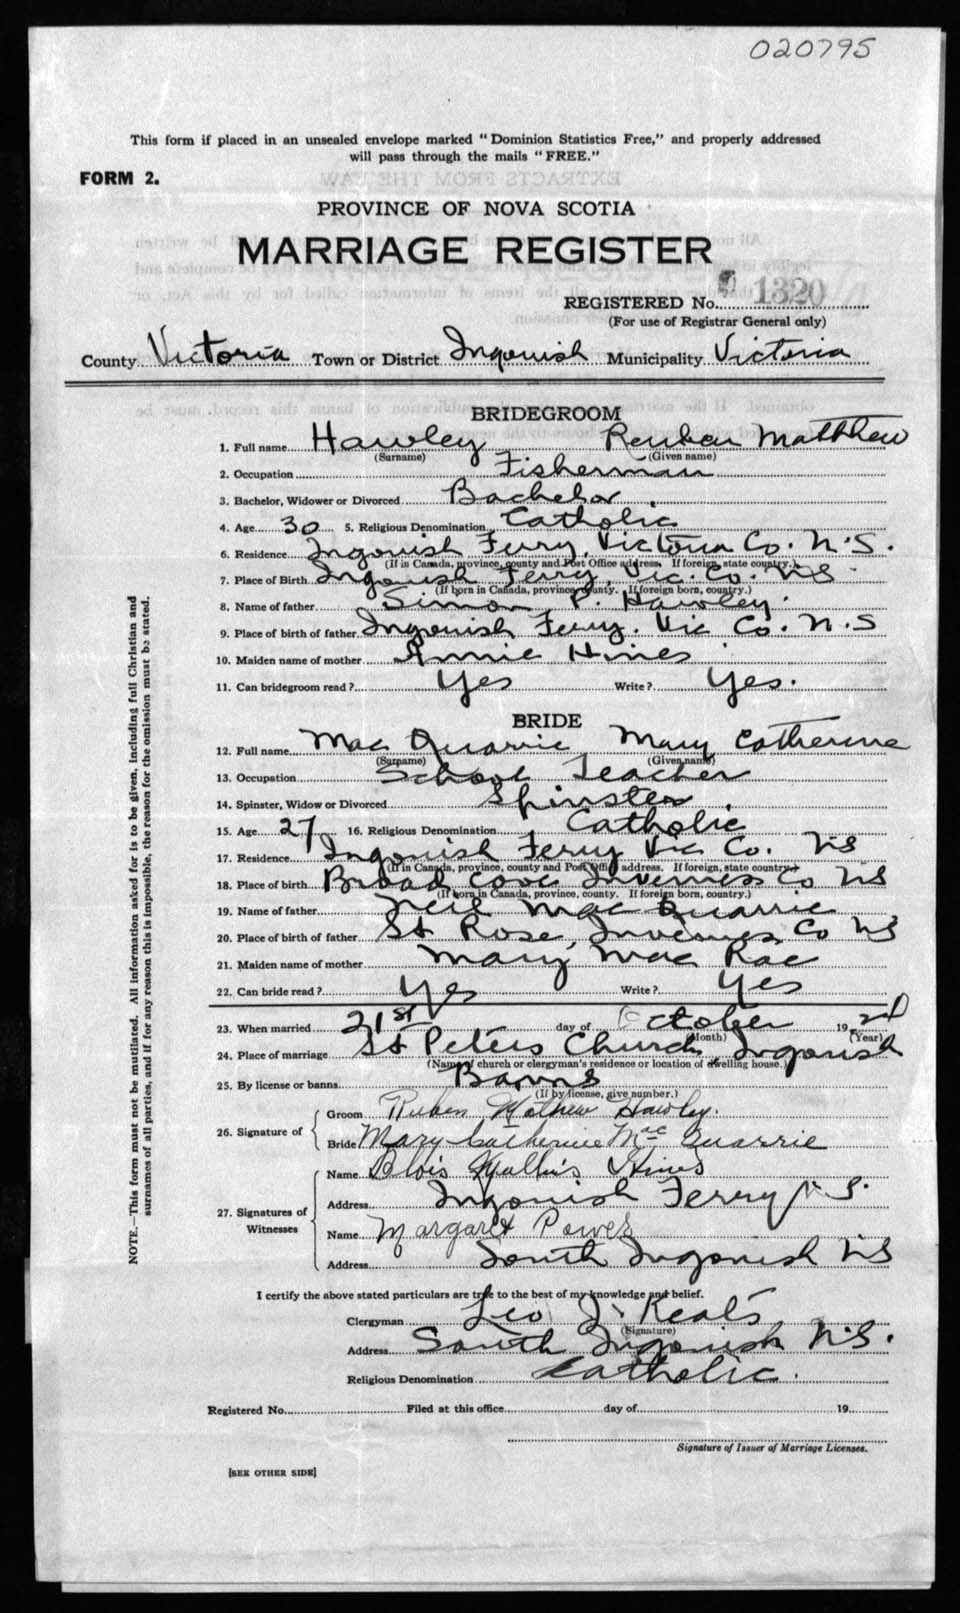 020795
This form if placed in an unsealed envelope marked "Dominion Statistics Free," and properly addressed
will pass through the mails "FREE."
FORM 2.
PROVINCE OF NOVA SCOTIA
MARRIAGE REGISTER
REGISTERED No. 1320
(For use of Registrar General only)
County Victoria Town or District Ingonish Municipality Victoria
BRIDEGROOM
1. Full name Hawley Reuben Matthew
(Surname) (Given name)
2. Occupation Fisherman
3. Bachelor, Widower or Divorced Bachelor
4. Age 30 5. Religious Denomination Catholic
6. Residence Ingonish Ferry, Victoria Co. N.S.
(If in Canada, province, county and Post Office address. If foreign, state country.)
7. Place of Birth Ingonish Ferry, Vic. Co. NS
(If born in Canada, province, county. If foreign born, country.)
8. Name of father Simon P. Hawley.
9. Place of birth of father Ingonish Ferry. Vic Co. N.S
10. Maiden name of mother Annie Hines
11. Can bridegroom read? Yes Write? Yes.
BRIDE
12. Full name Mac Quarrie Mary Catherine
(Surname) (Given name)
13. Occupation School Teacher
14. Spinster, Widow or Divorced Spinster
15. Age 27 16. Religious Denomination Catholic
17. Residence Ingonish Ferry Vic Co. NS
(If in Canada, province, county and Post Office address. If foreign, state country.)
18. Place of birth Broad Cove Inverness Co NS
(If born in Canada, province, county. If foreign born, country.)
19. Name of father Neil Mac Quarrie
20. Place of birth of father St Rose, Inverness Co NS
21. Maiden name of mother Mary Mac Rae
22. Can bride read? Yes Write? Yes
23. When married 21st day of October 19
(Month) (Year)
24. Place of marriage St Peters Church Ingonish
(Name of church or clergyman's residence or location of dwelling house.)
25. By license or banns Banns
(If by license, give number.)
26. Signature of
Groom Ruben Mathew Hawley.
Bride Mary Catherine Mac Quarrie
27. Signatures of Witnesses
Name Blois Hines
Address Ingonish Ferry N.S.
Name Margaret Power
Address South Ingonish NS
I certify the above stated particulars are true to the best of my knowledge and belief.
Clergyman Leo J. Keats
(Signature)
Address South Ingonish N.S.
Religious Denomination Catholic.
Registered No. Filed at this office day of 19
Signature of Issuer of Marriage Licenses.
[SEE OTHER SIDE]
NOTE.—This form must not be mutilated. All information asked for is to be given, including full Christian and
surnames of all parties, and if for any reason this is impossible, the reason for the omission must be stated.